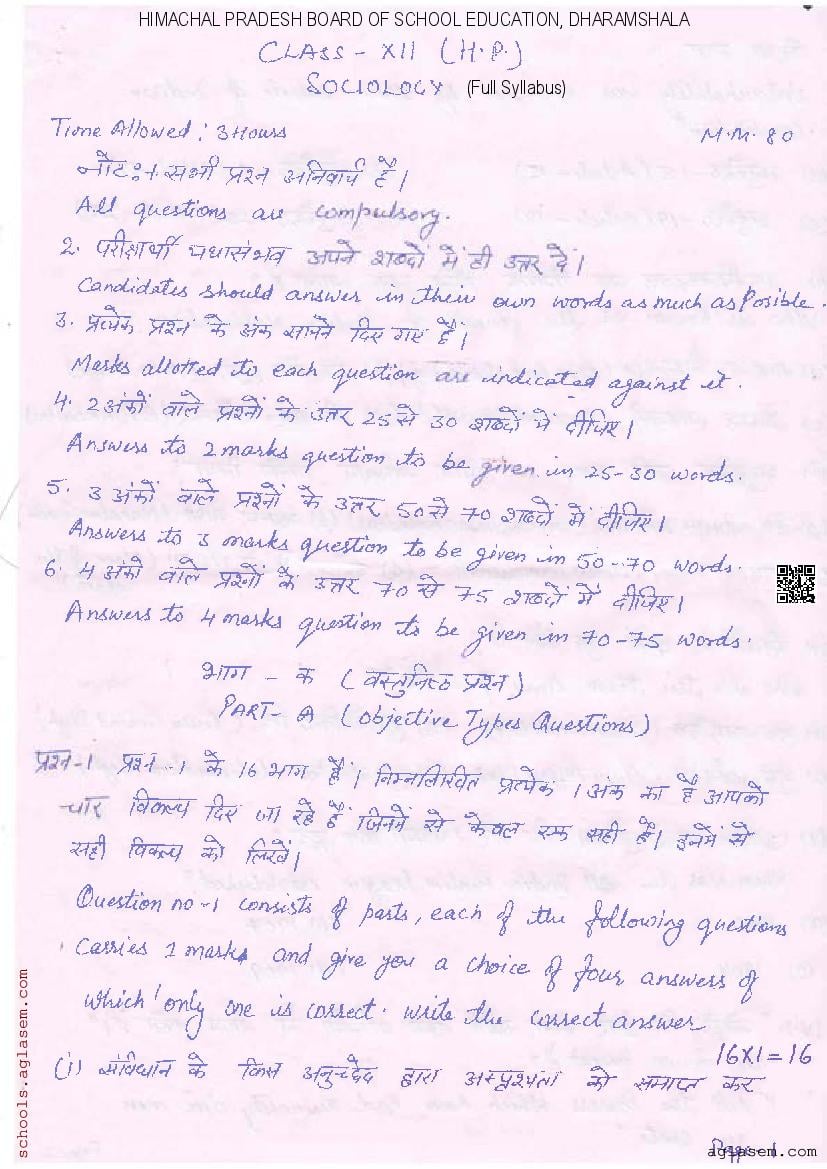 HIMACHAL PRADESH BOARD OF SCHOOL EDUCATION, DHARAMSHALA
CLASS - XII (H.P.)
SOCIOLOGY (Full Syllabus)
Time Allowed : 3 Hours
M.M. 80
नोट:+ सभी प्रश्न अनिवार्य है।
All questions are compulsory.
2. परीक्षार्थी यथासंभव अपने शब्दों में ही उत्तर दें।
Candidates should answer in their own words as much as Posible.
3. प्रत्येक प्रश्न के अंक सामने दिए गए हैं।
Marks allotted to each question are indicated against it.
4. 2 अंकों वाले प्रश्नों के उत्तर 25 से 30 शब्दों में दीजिए।
Answers to 2 marks question to be given in 25-30 words.
5. 3 अंकों वाले प्रश्नों के उत्तर 50 से 70 शब्दों में दीजिए।
Answers to 3 marks question to be given in 50-70 words.
6. 4 अंकों वाले प्रश्नों के उत्तर 70 से 75 शब्दों में दीजिए।
Answers to 4 marks question to be given in 70-75 words.
भाग - क (वस्तुनिष्ठ प्रश्न)
PART- A (Objective Types Questions)
प्रश्न-1 प्रश्न-1 के 16 भाग हैं। निम्नलिखित प्रत्येक 1 अंक का है आपको
चार विकल्प दिए जा रहे हैं जिनमें से केवल एक सही है। इनमें से
सही विकल्प को लिखें।
Question no-1 consists of parts, each of the following questions
carries 1 marks and give you a choice of four answers of
which only one is correct. write the correct answer
16X1=16
(i) संविधान के किस अनुच्छेद द्वारा अस्पृश्यता को समाप्त कर
schools.aglasem.com
aglasem.com